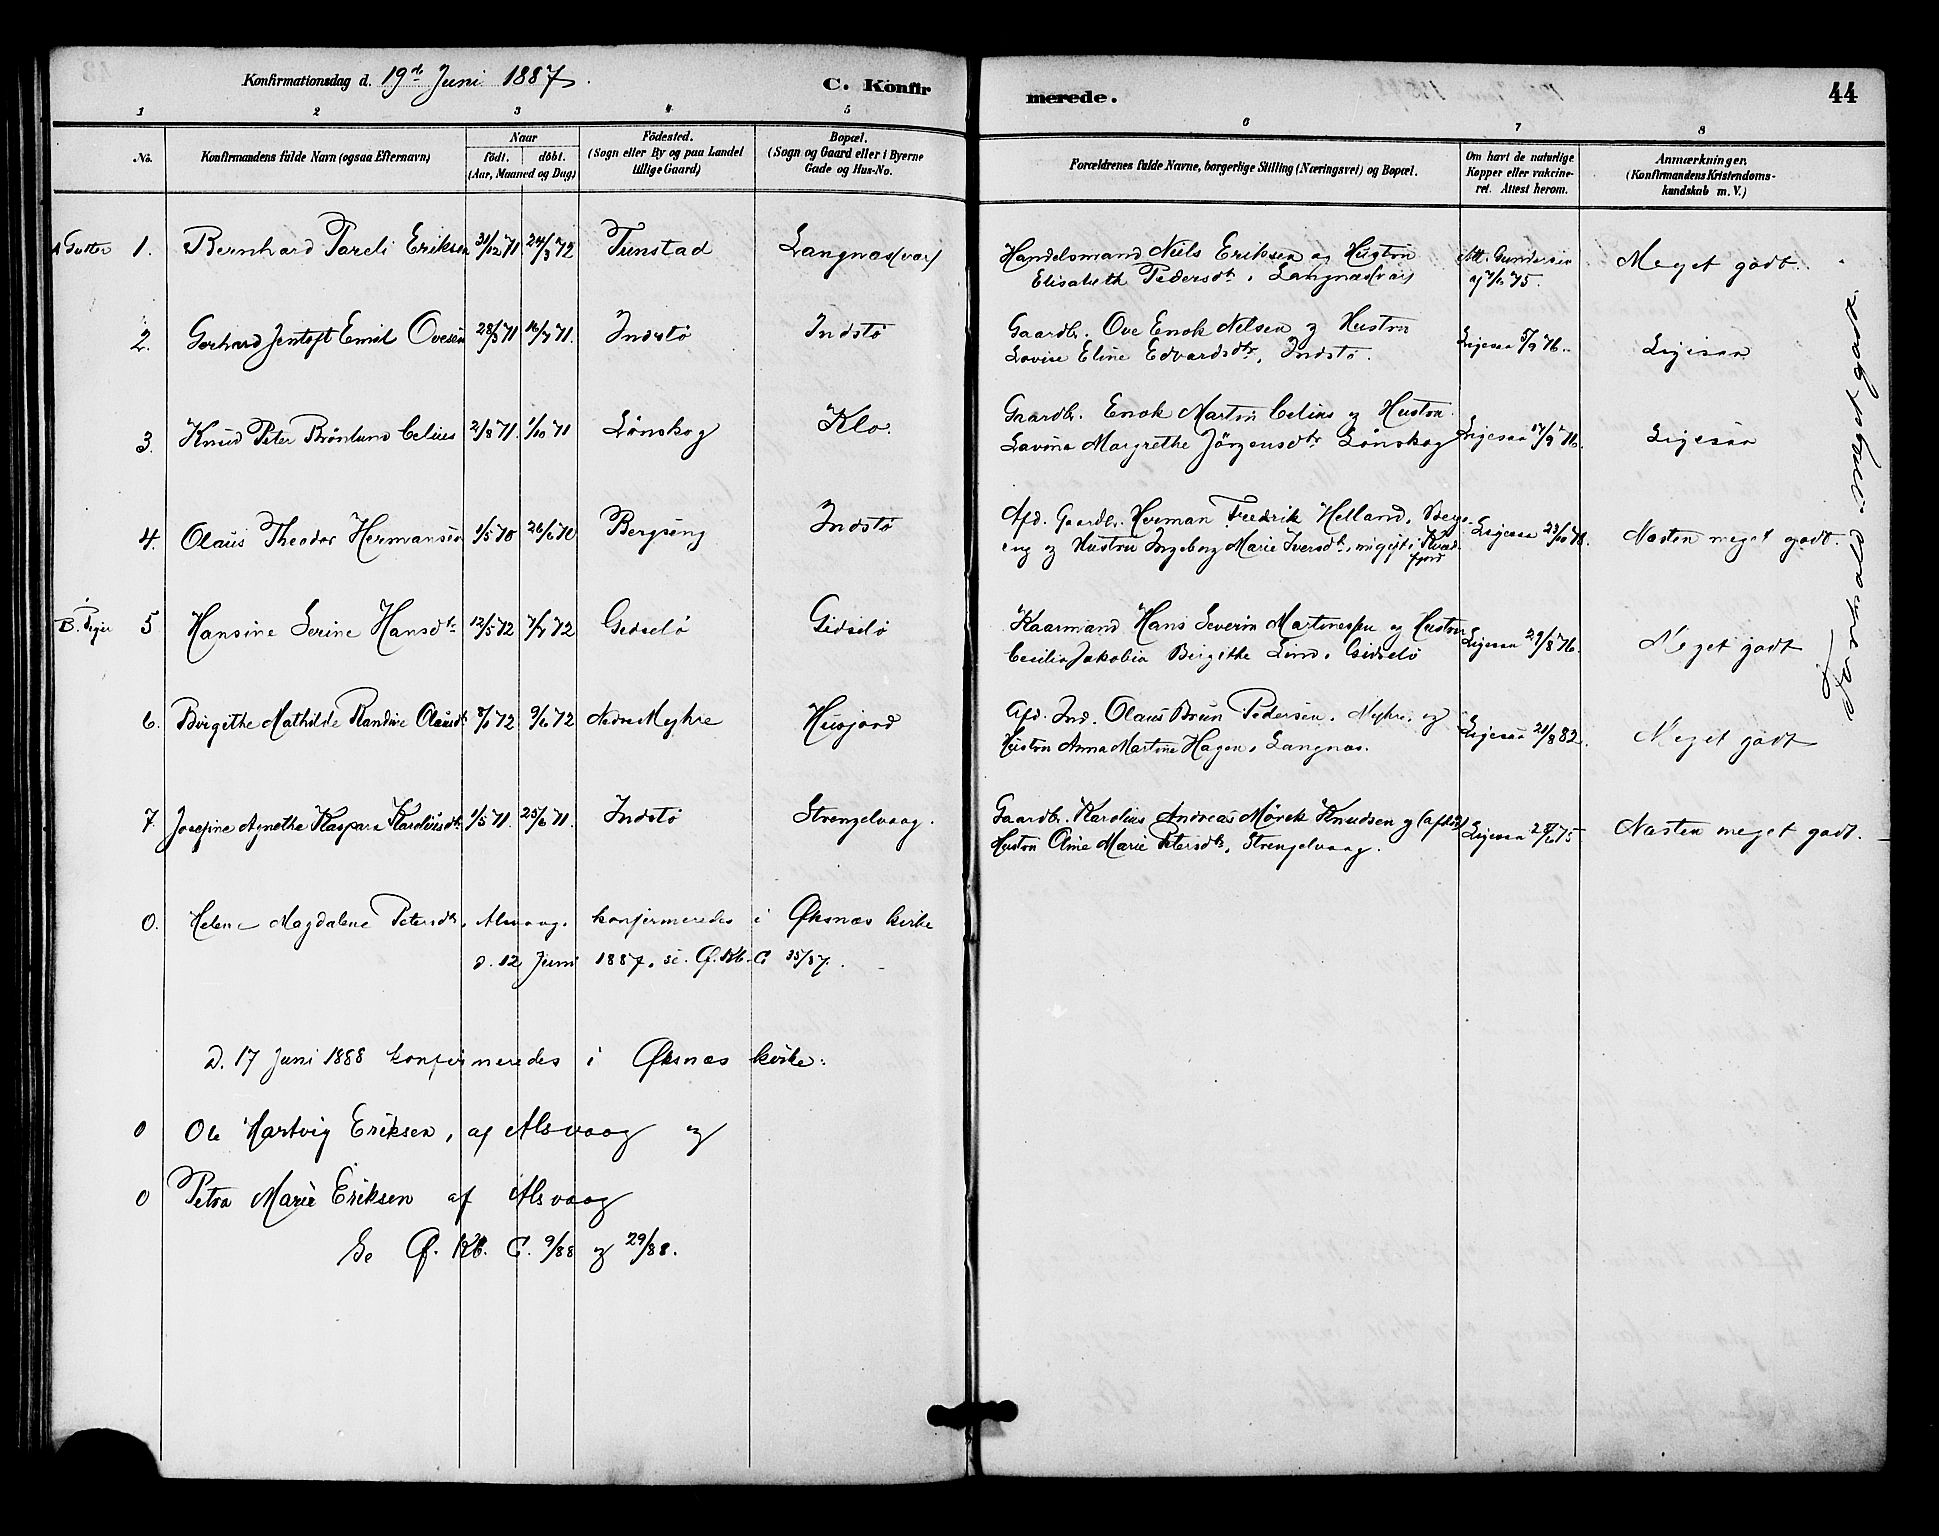 Konfirmationsdag d. 19de Juni 1887. C. Konfirmerede. 44
1 2 3 4 5 6 7 8
No. Konfirmandens fulde Navn (ogsaa Efternavn) Naar födt. döbt. (Aar, Maaned og Dag) Födested. (Sogn eller By og paa Landet tillige Gaard) Bopæl. (Sogn og Gaard eller i Byerne Gade og Hus-No. Forældrenes fulde Navne, borgerlige Stilling (Næringsvei) og Bopæl. Om havt de naturlige Kopper eller vakcineret. Attest herom. Anmærkninger. (Konfirmandens Kristendomskundskab m. V.)
A Gutter 1. Bernhard Pareli Eriksen 31/12 71 24/3 72 Tunstad Langnæs(vær) Handelsmand Niels Eriksen og Hustru Elisabeth Pedersdtr, Langnæs(vær) Att. Gundersen af 7/10 75. Meget godt.
2. Gerhard Jentoft Emil Ovesen 28/3 71 16/7 71. Indstö Indstö Gaardbr. Ove Enok Nelsen og Hustru Lovise Eline Edvardsdtr, Indstö. Ligesaa 5/9 76. Ligesaa
3. Knud Peter Brönlund Celius 2/8 71. 1/10 71 Lönskog Klo. Gaardbr. Enok Martin Celius og Hustru Lavina Margrethe Jörgensdtr Lönskog Ligesaa 17/9 76. Ligesaa
4. Olaus Theodor Hermansen 1/5 70 26/6 70 Bergseng Indstö Afd. Gaardbr. Herman Fredrik Helland, Bergseng og Hustru Ingeborg Marie Iversdtr, nugift i Kvædfjord Ligesaa 23/10 78. Næsten meget godt.
B. Piger 5 Hansine Serine Hansdtr 12/5 72 7/7 72 Gidselö Gidselö Kaarmand Hans Severin Martinessen og Hustru Cecilia Jakobia Birgithe Lind, Gidselö Ligesaa 29/8 76. Meget godt
6. Birgithe Mathilde Randine Olausdtr 8/1 72 9/6 72 Nedre Myhre Husjord Afd. Ind. Olaus Brun Pedersen, Myhre, og Hustru Anna Martine Hagen, Langnæs. Ligesaa 21/8 82. Meget godt
7. Josefine Agnethe Kaspara Karoliusdtr 1/5 71. 25/6 71. Indstö Strengelvaag. Gaardbr. Karolius Andreas Mörch Knudsen og (afdöd) Hustru Oline Marie Petersdtr, Strengelvaag. Ligesaa 28/6 75 Næsten meget godt.
Forhold: meget godt.
0. Helene Magdalene Petersdtr, Alsvaag, konfirmeredes i Øksnæs kirke
d. 12 Juni 1887, se Ø. Kb. C 35/87.
D. 17 Juni 1888 konfirmeredes i Øksnæs kirke:
0 Ole Hartvig Eriksen, af Alsvaag og
0 Petra Marie Eriksen af Alsvaag
Se Ø. Kb. C. 9/88 og 29/88.